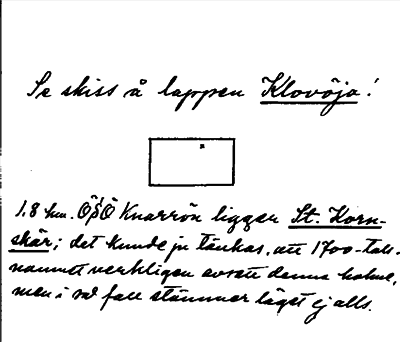 Se skiss å lappen Klovöja!
1,8 km. ÖSÖ Knarrön ligger St. Korn-
skär; det kunde ju tänkas, att 1700-tals-
namnet verkligen avsett denna holme,
men i så fall stämmer läget ej alls.